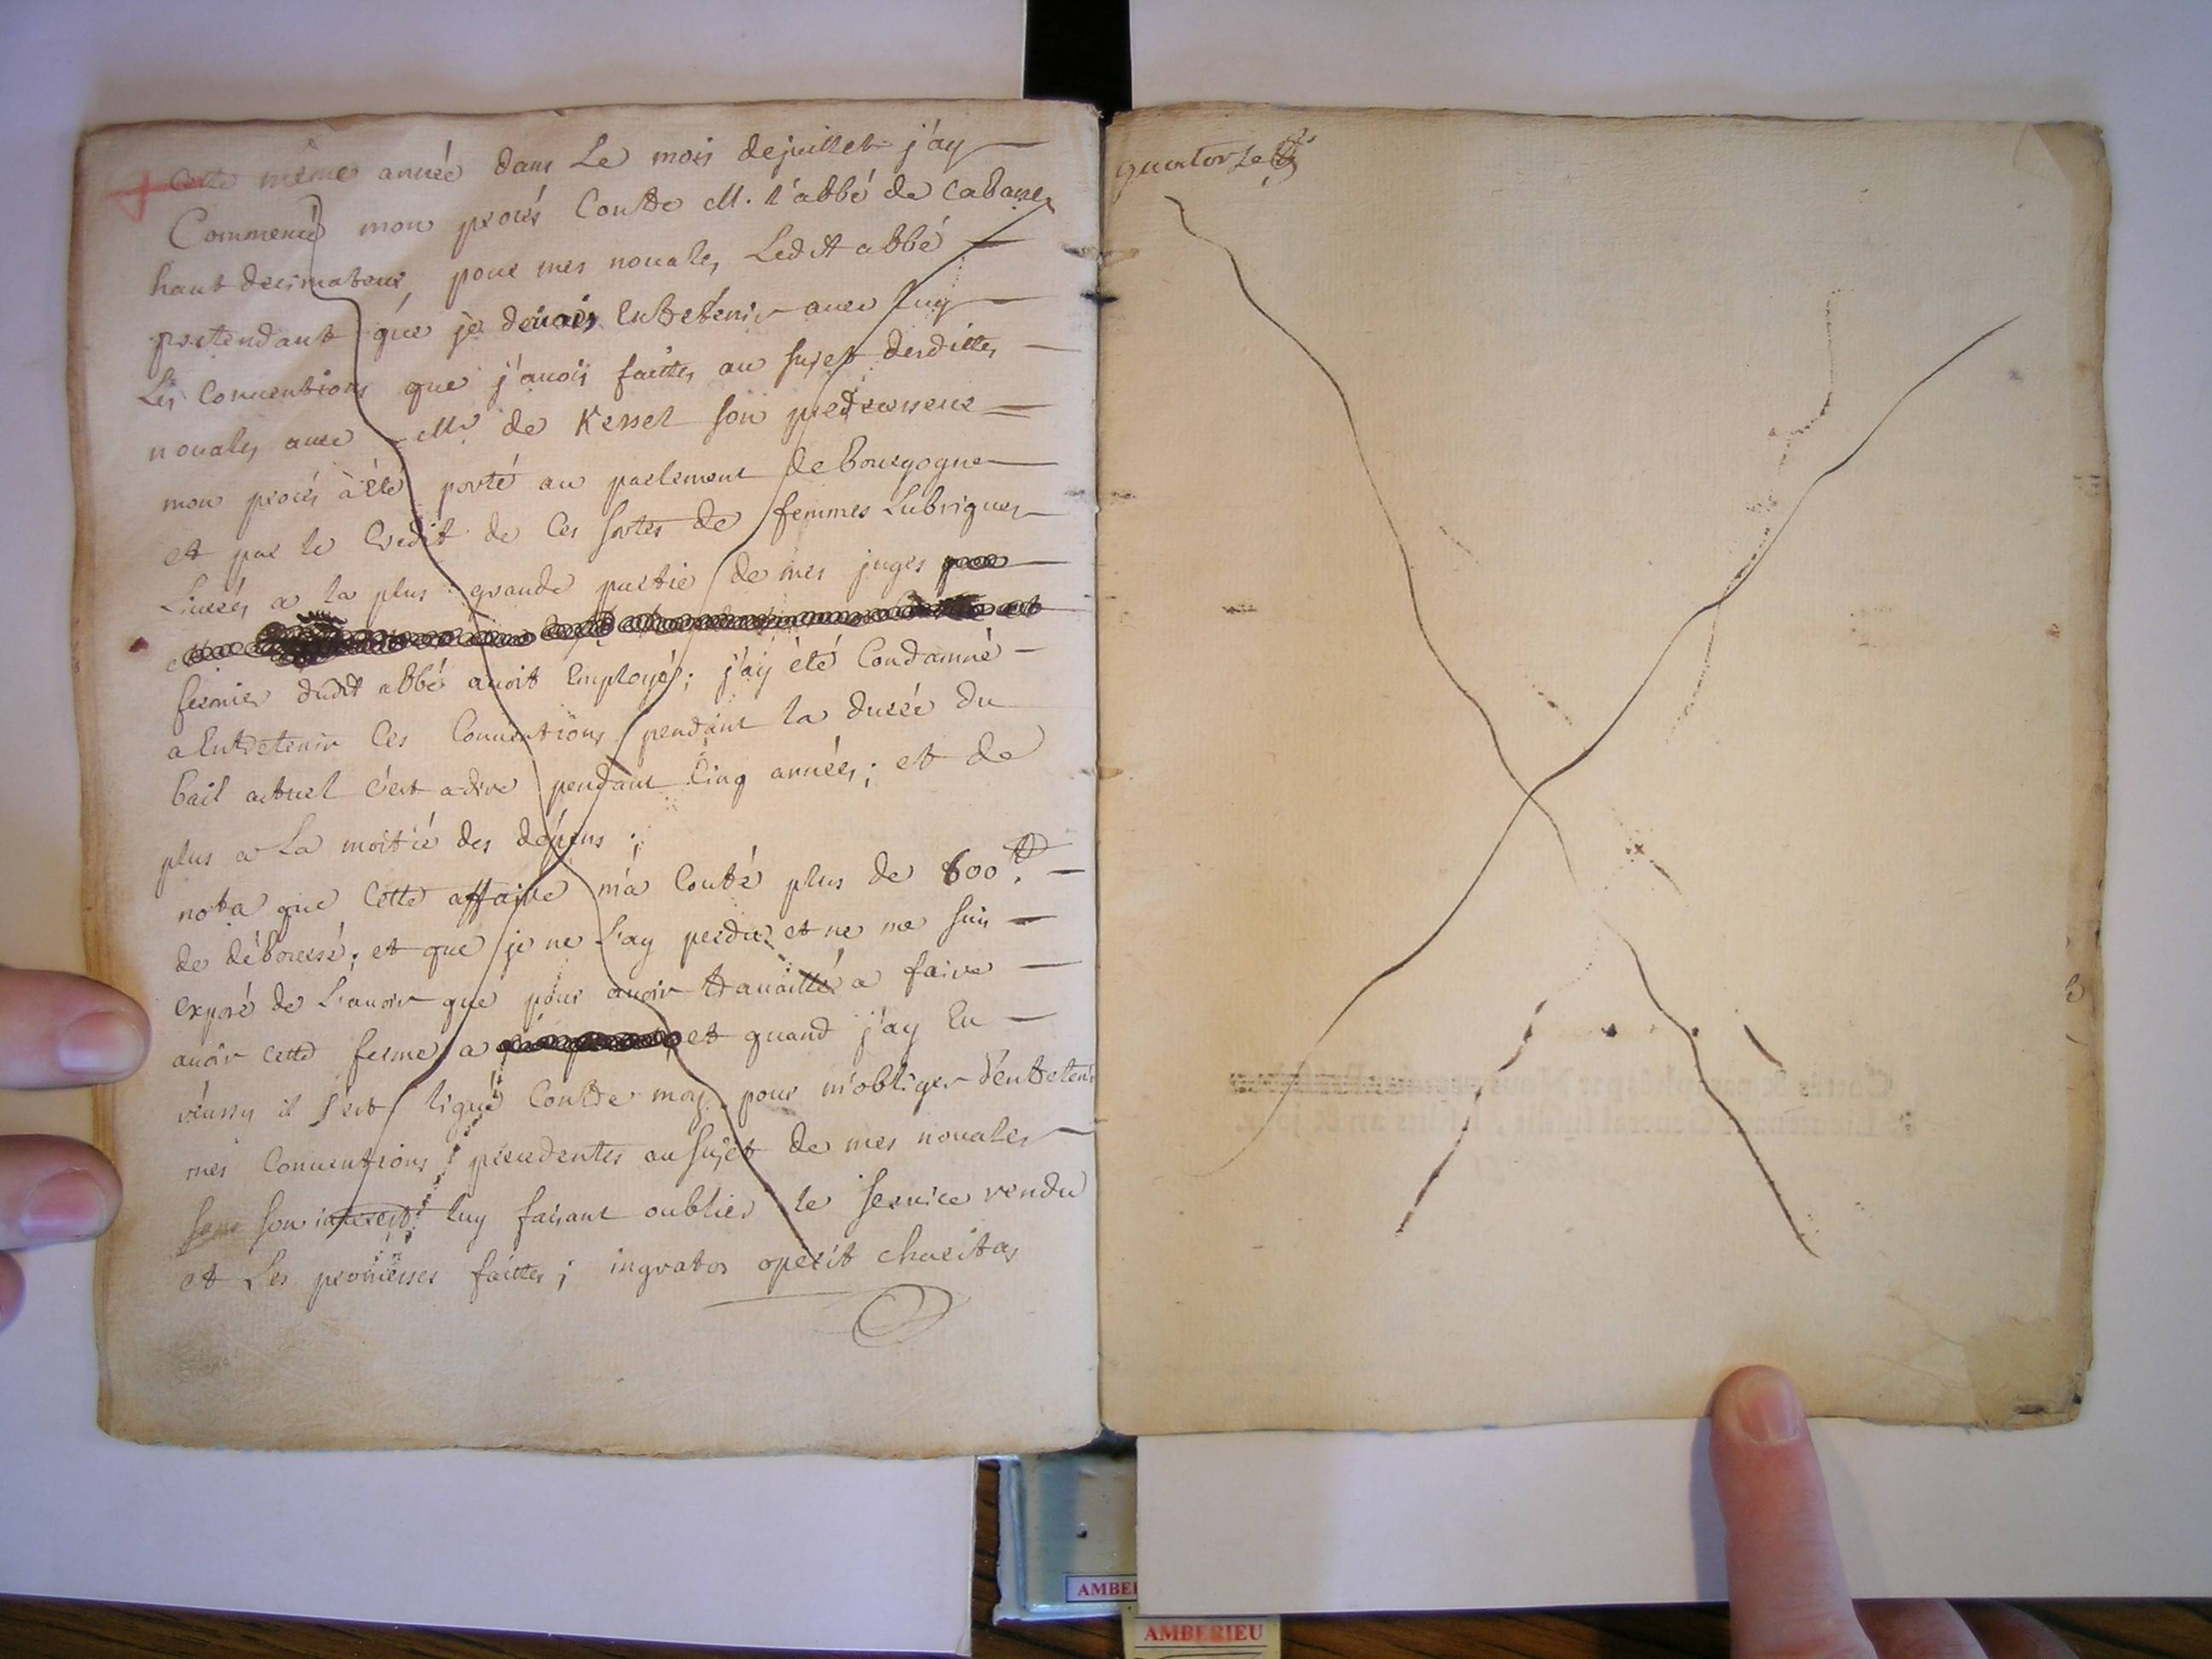 Cette même année dans Le mois de juillet j'ay
Commencé mon procés Contre M. l'abbé de Cabanes
haut decimateur, pour mes nouales, Ledit abbé
pretendant que je deuois Entretenir auec luy
Les Conuentions que j'auois faittes au Sujet desdittes
nouales auec Mr. de Kessel son predecesseur
mon procés à été porté au parlement de Bourgogne
et par le Credit de Ces sortes de femmes Lubriques
Liurées a la plus grande partie de mes juges
fermier dudit abbé auoit Employés; j'ay été Condamné
a Entretenir Ces Conuentions pendant la durée du
bail actuel C'est a dire pendant Cinq années; et de
plus a La moitié des dépens;
nota que Cette affaire m'a Couté plus de 600 ₶.
de déboursé; et que je ne L'ay perdu et ne me suis
exposé de L'auoir que pour auoir trauaillé a faire
auoir cette ferme a et quand j'ay Eu
réussy il s'est ligué Contre moy pour m'obliger d'entretenir
mes Conuentions precedentes au Sujet de mes nouales
son interest luy faisant oublier le seruice rendu
et Les promesses faittes; ingratos operit charitas
quatorze
AMBE
AMBERIEU